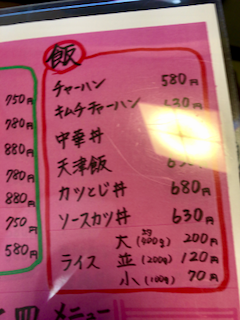 飯
チャーハン 580円
キムチチャーハン 630円
中華丼
天津飯
カツとじ丼 680円
ソースカツ丼 630円
ライス
大(400g) 200円
並(200g) 120円
小(100g) 70円
750円
780円
880円
780円
880円
750円
580円
メニュー